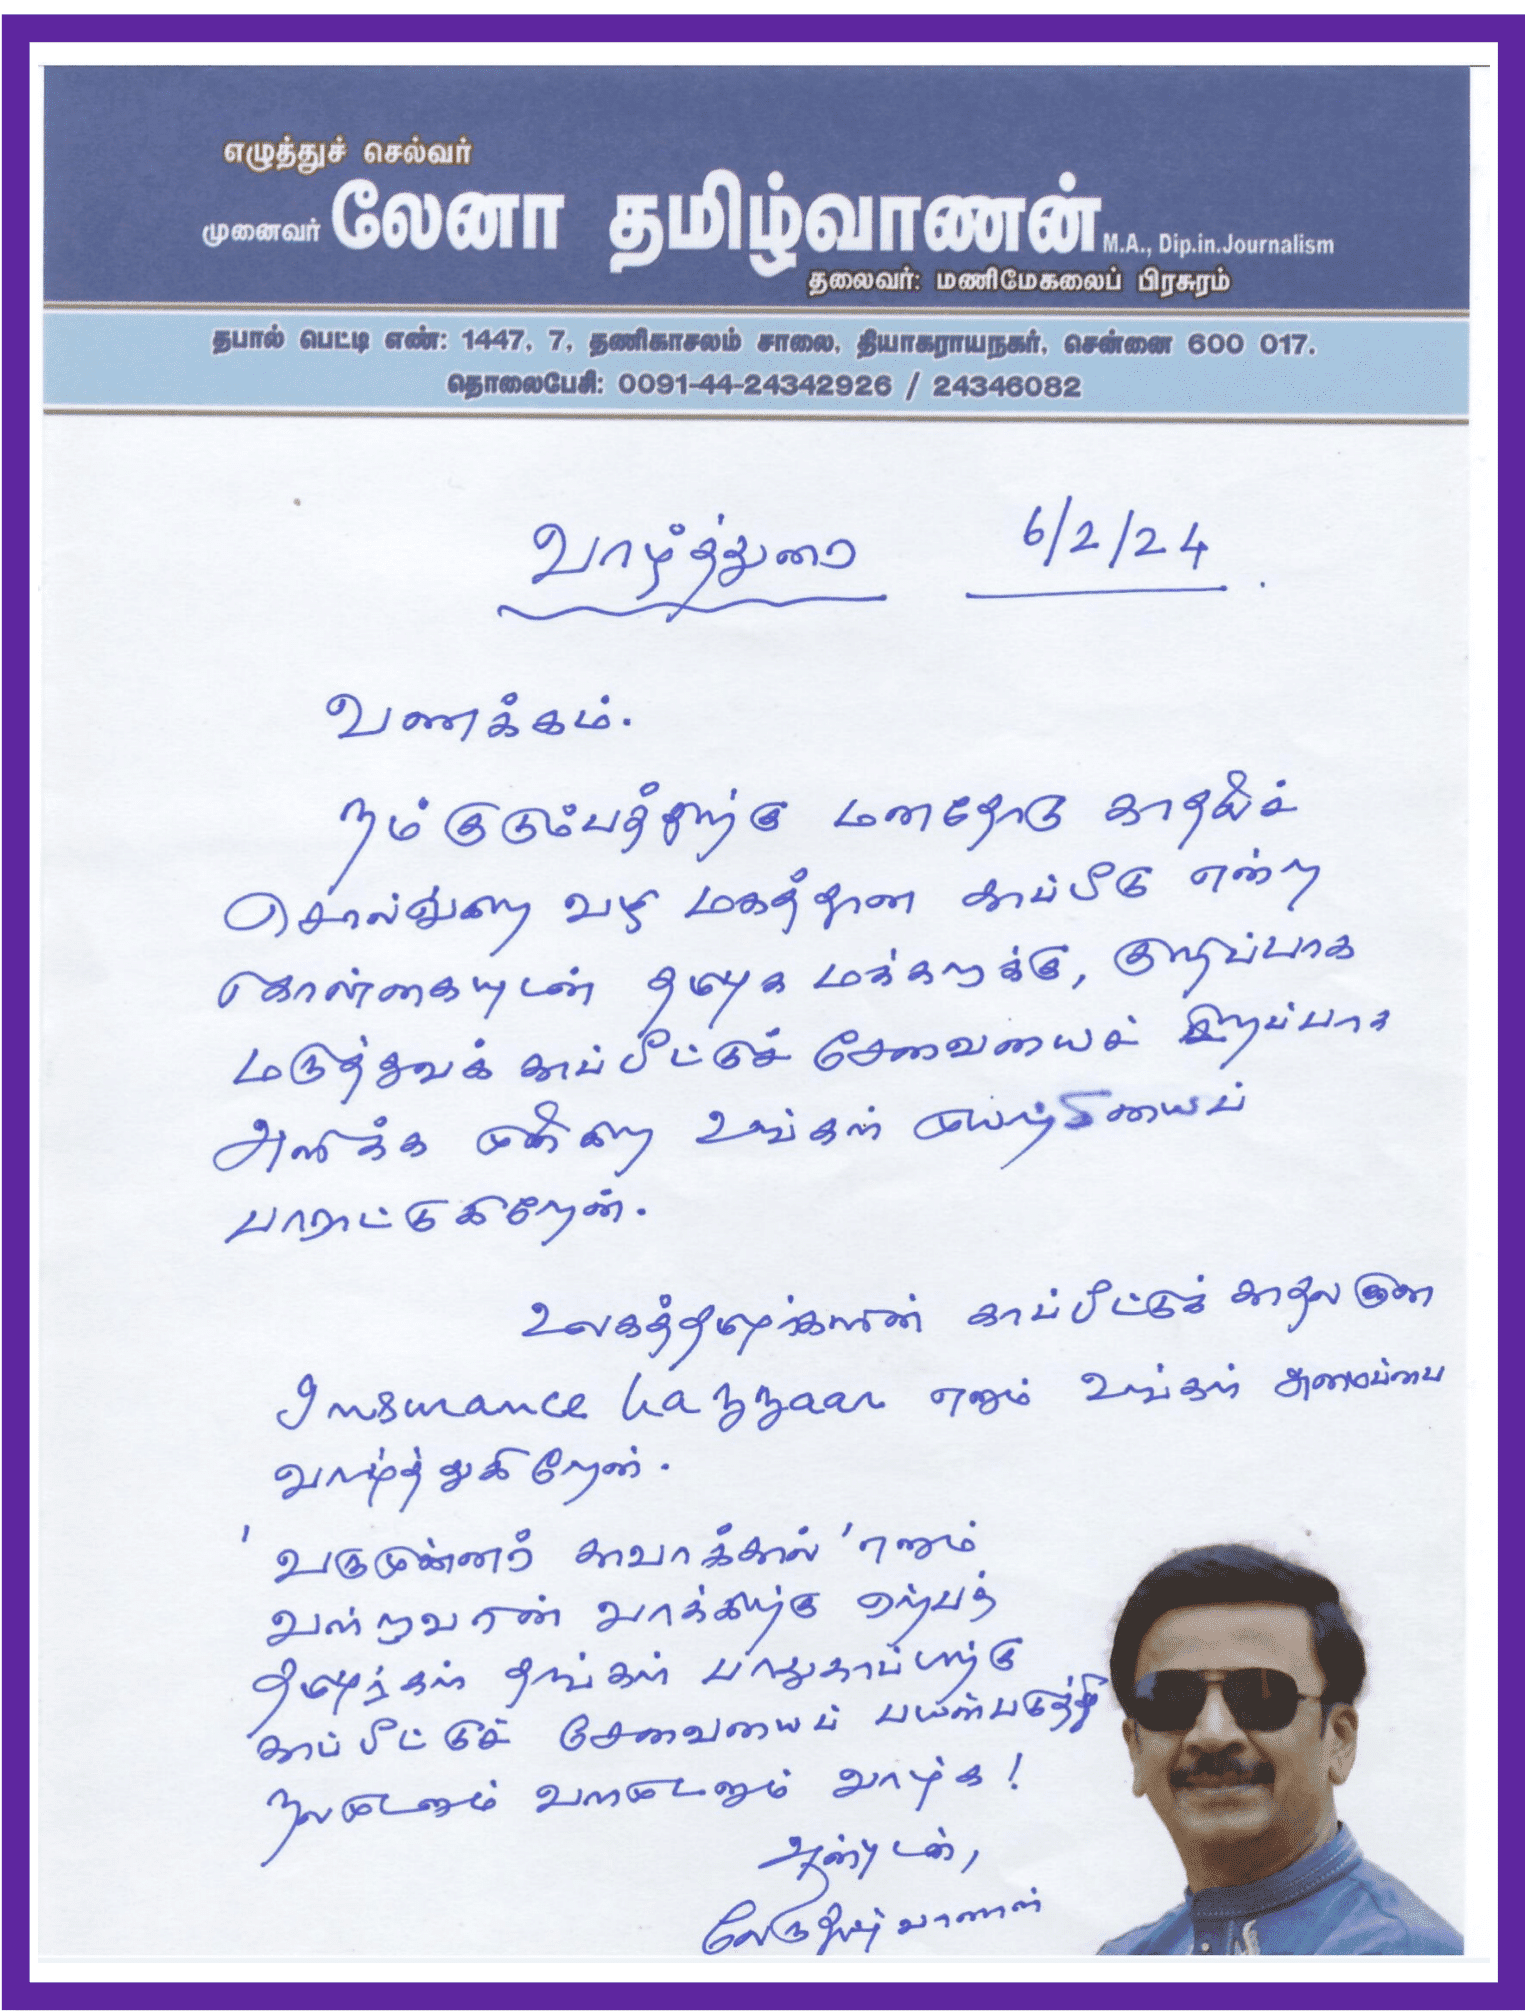 எழுத்துச் செல்வர்
முனைவர் லேனா தமிழ்வாணன் M.A., Dip.in.Journalism
தலைவர்: மணிமேகலைப் பிரசுரம்
தபால் பெட்டி எண்: 1447, 7, தணிகாசலம் சாலை, தியாகராயநகர், சென்னை 600 017.
தொலைபேசி: 0091-44-24342926 / 24346082
வாழ்த்துரை 6/2/24
வணக்கம்.
நம் குடும்பத்திற்கு மனதோடு காதலைச்
சொல்கிற வழி மகத்தான காப்பீடு என்ற
கொள்கையுடன் தமிழக மக்களுக்கு, குறிப்பாக
மருத்துவக் காப்பீட்டுச் சேவையைச் சிறப்பாக
அளிக்க முனைகிற உங்கள் முயற்சியைப்
பாராட்டுகிறேன்.
உலகத்தமிழர்களின் காப்பீட்டுக் காதலனான
Insurance kaννaan எனும் உங்கள் அமைப்பை
வாழ்த்துகிறேன்.
'வருமுன்னர் காவாக்கால்' எனும்
வள்ளுவரின் வாக்கிற்கு ஏற்பத்
தமிழர்கள் தங்கள் பாதுகாப்பிற்கு
காப்பீட்டுச் சேவையைப் பயன்படுத்தி
நலமுடனும் வளமுடனும் வாழ்க!
அன்புடன்,
லேனா தமிழ்வாணன்